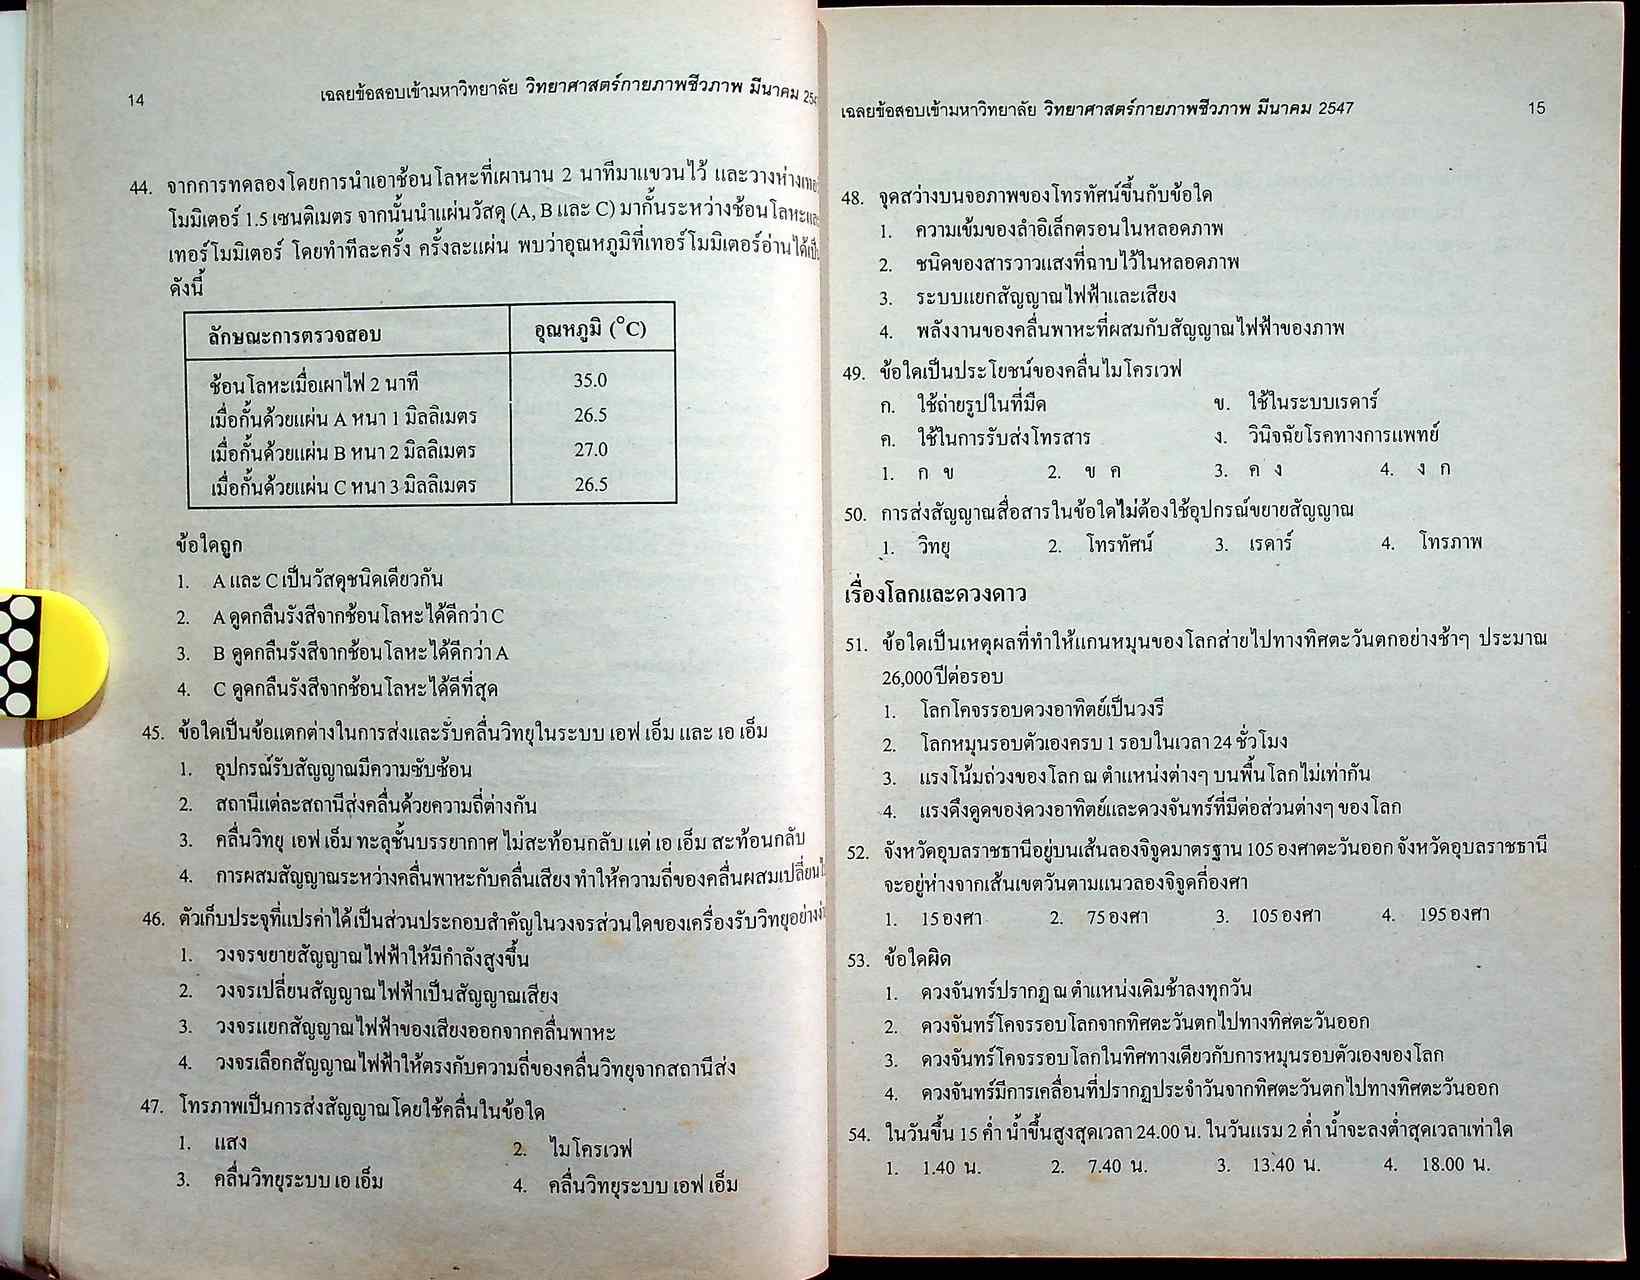 14
เฉลยข้อสอบเข้ามหาวิทยาลัย วิทยาศาสตร์กายภาพชีวภาพ มีนาคม
44. จากการทดลองโดยการนำเอาช้อนโลหะที่เผานาน 2 นาทีมาแขวนไว้ และวางห่างเทอร์
โมมิเตอร์ 1.5 เซนติเมตร จากนั้นนำแผ่นวัสดุ (A, B และ C) มากั้นระหว่างช้อนโลหะและ
เทอร์โมมิเตอร์ โดยทำทีละครั้ง ครั้งละแผ่น พบว่าอุณหภูมิที่เทอร์โมมิเตอร์อ่านได้เป็น
ดังนี้
ลักษณะการตรวจสอบ อุณหภูมิ (°C)
ช้อนโลหะเมื่อเผาไฟ 2 นาที 35.0
เมื่อกั้นด้วยแผ่น A หนา 1 มิลลิเมตร 26.5
เมื่อกั้นด้วยแผ่น B หนา 2 มิลลิเมตร 27.0
เมื่อกั้นด้วยแผ่น C หนา 3 มิลลิเมตร 26.5
ข้อใดถูก
1. A และ C เป็นวัสดุชนิดเดียวกัน
2. A ดูดกลืนรังสีจากช้อนโลหะได้ดีกว่า C
3. B ดูดกลืนรังสีจากช้อนโลหะได้ดีกว่า A
4. C ดูดกลืนรังสีจากช้อนโลหะได้ดีที่สุด
45. ข้อใดเป็นข้อแตกต่างในการส่งและรับคลื่นวิทยุในระบบ เอฟ เอ็ม และ เอ เอ็ม
1. อุปกรณ์รับสัญญาณมีความซับซ้อน
2. สถานีแต่ละสถานีส่งคลื่นด้วยความถี่ต่างกัน
3. คลื่นวิทยุ เอฟ เอ็ม ทะลุชั้นบรรยากาศ ไม่สะท้อนกลับ แต่ เอ เอ็ม สะท้อนกลับ
4. การผสมสัญญาณระหว่างคลื่นพาหะกับคลื่นเสียง ทำให้ความถี่ของคลื่นผสมเปลี่ยน
46. ตัวเก็บประจุที่แปรค่าได้เป็นส่วนประกอบสำคัญในวงจรส่วนใดของเครื่องรับวิทยุอย่าง
1. วงจรขยายสัญญาณไฟฟ้าให้มีกำลังสูงขึ้น
2. วงจรเปลี่ยนสัญญาณไฟฟ้าเป็นสัญญาณเสียง
3. วงจรแยกสัญญาณไฟฟ้าของเสียงออกจากคลื่นพาหะ
4. วงจรเลือกสัญญาณไฟฟ้าให้ตรงกับความถี่ของคลื่นวิทยุจากสถานีส่ง
47. โทรภาพเป็นการส่งสัญญาณโดยใช้คลื่นในข้อใด
1. แสง 2. ไมโครเวฟ
3. คลื่นวิทยุระบบ เอ เอ็ม 4. คลื่นวิทยุระบบ เอฟ เอ็ม
เฉลยข้อสอบเข้ามหาวิทยาลัย วิทยาศาสตร์กายภาพชีวภาพ มีนาคม 2547 15
48. จุดสว่างบนจอภาพของโทรทัศน์ขึ้นกับข้อใด
1. ความเข้มของลำอิเล็กตรอนในหลอดภาพ
2. ชนิดของสารวาวแสงที่ฉาบไว้ในหลอดภาพ
3. ระบบแยกสัญญาณไฟฟ้าและเสียง
4. พลังงานของคลื่นพาหะที่ผสมกับสัญญาณไฟฟ้าของภาพ
49. ข้อใดเป็นประโยชน์ของคลื่นไมโครเวฟ
ก. ใช้ถ่ายรูปในที่มืด ข. ใช้ในระบบเรดาร์
ค. ใช้ในการรับส่งโทรสาร ง. วินิจฉัยโรคทางการแพทย์
1. ก ข 2. ข ค 3. ค ง 4. ง ก
50. การส่งสัญญาณสื่อสารในข้อใดไม่ต้องใช้อุปกรณ์ขยายสัญญาณ
1. วิทยุ 2. โทรทัศน์ 3. เรดาร์ 4. โทรภาพ
เรื่องโลกและดวงดาว
51. ข้อใดเป็นเหตุผลที่ทำให้แกนหมุนของโลกส่ายไปทางทิศตะวันตกอย่างช้าๆ ประมาณ
26,000 ปีต่อรอบ
1. โลกโคจรรอบดวงอาทิตย์เป็นวงรี
2. โลกหมุนรอบตัวเองครบ 1 รอบในเวลา 24 ชั่วโมง
3. แรงโน้มถ่วงของโลก ณ ตำแหน่งต่างๆ บนพื้นโลกไม่เท่ากัน
4. แรงดึงดูดของดวงอาทิตย์และดวงจันทร์ที่มีต่อส่วนต่างๆ ของโลก
52. จังหวัดอุบลราชธานีอยู่บนเส้นลองจิจูดมาตรฐาน 105 องศาตะวันออก จังหวัดอุบลราชธานี
จะอยู่ห่างจากเส้นเขตวันตามแนวลองจิจูดกี่องศา
1. 15 องศา 2. 75 องศา 3. 105 องศา 4. 195 องศา
53. ข้อใดผิด
1. ดวงจันทร์ปรากฏ ณ ตำแหน่งเดิมช้าลงทุกวัน
2. ดวงจันทร์โคจรรอบโลกจากทิศตะวันตกไปทางทิศตะวันออก
3. ดวงจันทร์โคจรรอบโลกในทิศทางเดียวกับการหมุนรอบตัวเองของโลก
4. ดวงจันทร์มีการเคลื่อนที่ปรากฏประจำวันจากทิศตะวันตกไปทางทิศตะวันออก
54. ในวันขึ้น 15 ค่ำ น้ำขึ้นสูงสุดเวลา 24.00 น. ในวันแรม 2 ค่ำ น้ำจะลงต่ำสุดเวลาเท่าใด
1. 1.40 น. 2. 7.40 น. 3. 13.40 น. 4. 18.00 น.